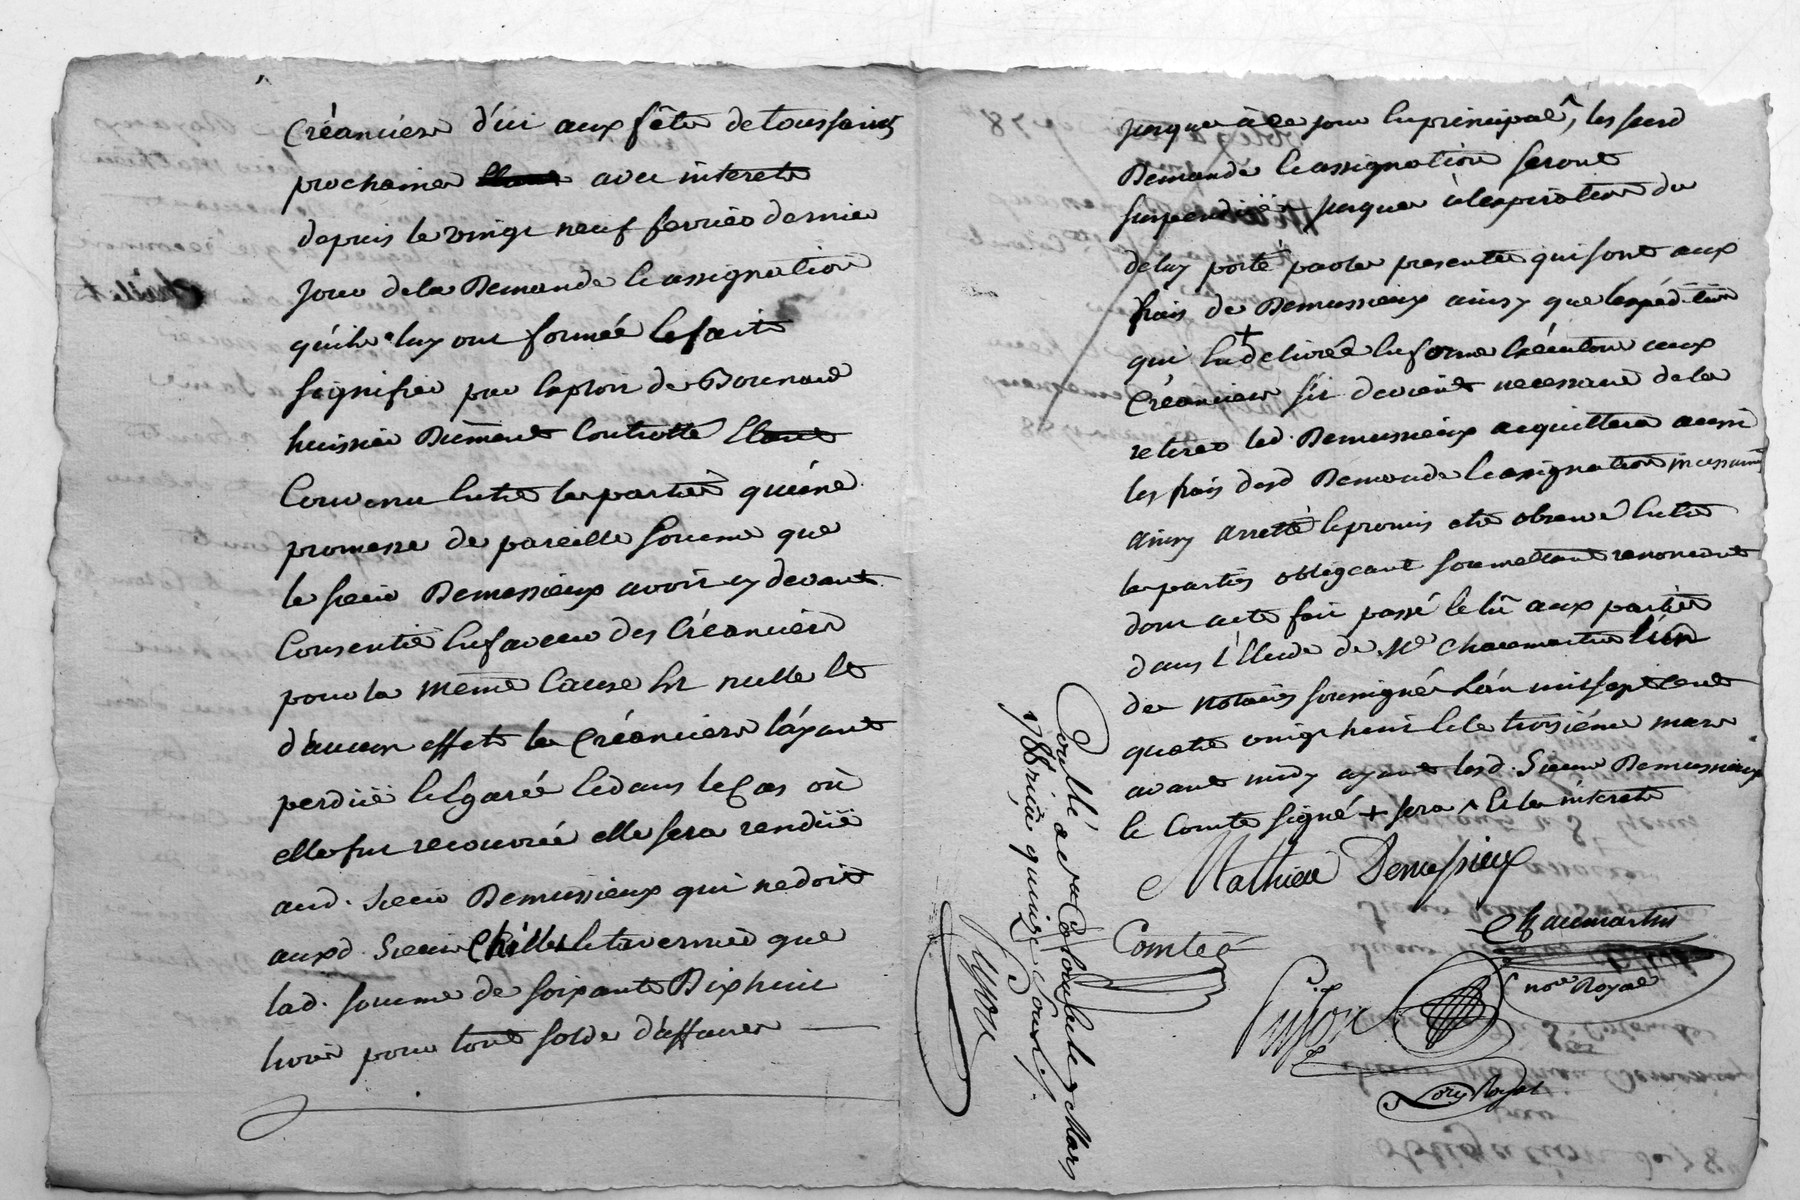 Créanciers d'ici aux fête de toussaint
prochaine avec interets
depuis le vingt neuf fevrier dernier
jour de la Demande & assignation
qu'ils luy ont formée & fait
signifier par exploit de Bournand
huissier Duement Controllé Etant
Convenu Entre les parties qu'une
promesse de pareille somme que
le sieur Demussieux avoit cy devant
Consentie En faveur des Créanciers
pour la même Cause Est nulle et
d'aucun effet les Créanciers l'ayant
perdüe & Egarée & dans le Cas où
elle fut recouvrée elle sera rendüe
aud. sieur Demussieux qui ne doit
auxd. sieurs & tavernier que
lad. somme de soixante Dix huit
livres pour tout solde d'affaires
jusque à ce jour En principal ^, les susd
Demande & assignation seront
suspendües jusque à l'expiration du
delay porté par les presentes qui sont aux
frais de Demussieux ainsy que l'expédition
qui En + delivrée En forme Exécutoire aux
Créanciers s'il devient necessaire de la
retirer led. Demussieux acquittera aussi
les frais desd Demande & assignation incessament
ainsy arretté & promis etre observé Entre
les parties obligeant soumettant renoncant
dont acte fait passé & lû aux parties
dans l'Etude de Me Chaumartin l'un
des notaires soussignés L'an mil sept cent
quatre vingt huit & le troisième mars
avant midy ayant lesd. Sieurs Demussieux
& Comte signé + sera ^ & les interets
Mathieu Demussieux
Chaumartin
Comte
nore Royal
Nore Royal
Controllé à Ste Colombe le 7 Mars
1788 reçu quinze sols.